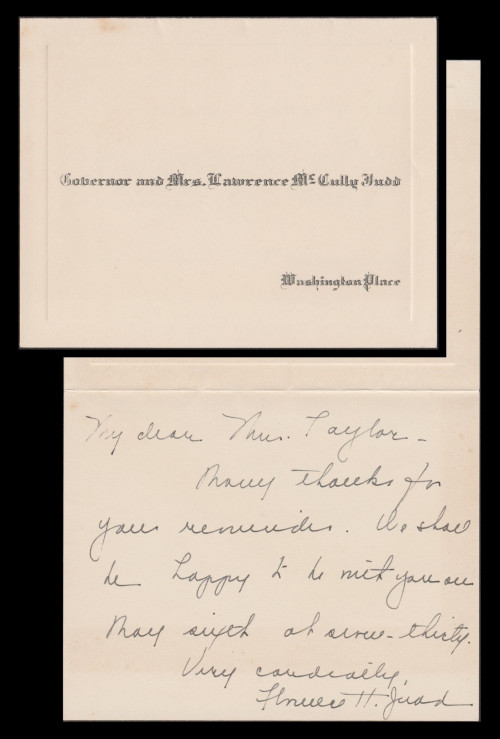 Governor and Mrs. Lawrence Mc Cully Judd
Washington Place
My dear Mrs. Taylor—
Many thanks for
your reminder. We shall
be happy to be with you on
May sixth at seven-thirty.
Very cordially,
Florence H. Judd